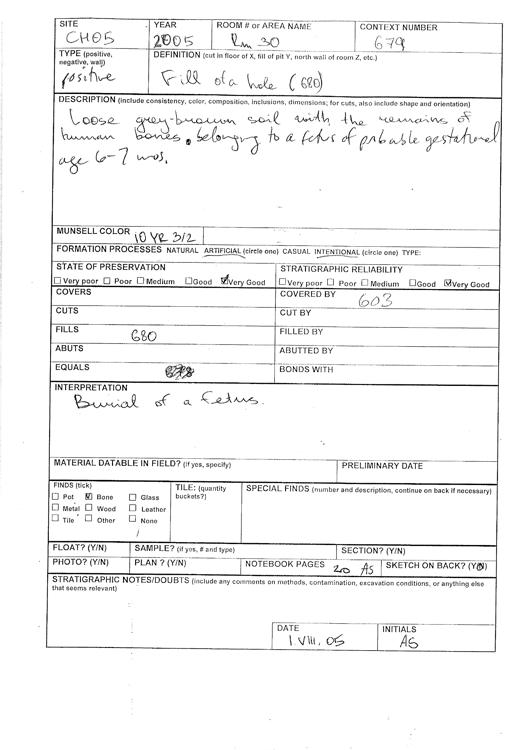 SITE
CH05
YEAR
2005
ROOM # or AREA NAME
Rm 30
CONTEXT NUMBER
679
TYPE (positive, negative, wall)
positive
DEFINITION (cut in floor of X, fill of pit Y, north wall of room Z, etc.)
Fill of a hole (680)
DESCRIPTION (include consistency, color, composition, inclusions, dimensions; for cuts, also include shape and orientation)
Loose grey-brown soil with the remains of
human bones, belonging to a fetus of probable gestational
age 6-7 mos.
MUNSELL COLOR 10 YR 3/2
FORMATION PROCESSES NATURAL ARTIFICIAL (circle one) CASUAL INTENTIONAL (circle one) TYPE:
STATE OF PRESERVATION
Very poor Poor Medium Good Very Good
STRATIGRAPHIC RELIABILITY
Very poor Poor Medium Good Very Good
COVERS
COVERED BY 603
CUTS
CUT BY
FILLS 680
FILLED BY
ABUTS
ABUTTED BY
EQUALS
BONDS WITH
INTERPRETATION
Burial of a fetus.
MATERIAL DATABLE IN FIELD? (if yes, specify)
PRELIMINARY DATE
FINDS (tick)
Pot Bone Glass
Metal Wood Leather
Tile Other None
TILE: (quantity buckets?)
SPECIAL FINDS (number and description, continue on back if necessary)
FLOAT? (Y/N)
SAMPLE? (if yes, # and type)
SECTION? (Y/N)
PHOTO? (Y/N)
PLAN ? (Y/N)
NOTEBOOK PAGES 20 AS
SKETCH ON BACK? (Y/N)
STRATIGRAPHIC NOTES/DOUBTS (include any comments on methods, contamination, excavation conditions, or anything else
that seems relevant)
DATE
1.VIII.05
INITIALS
AS